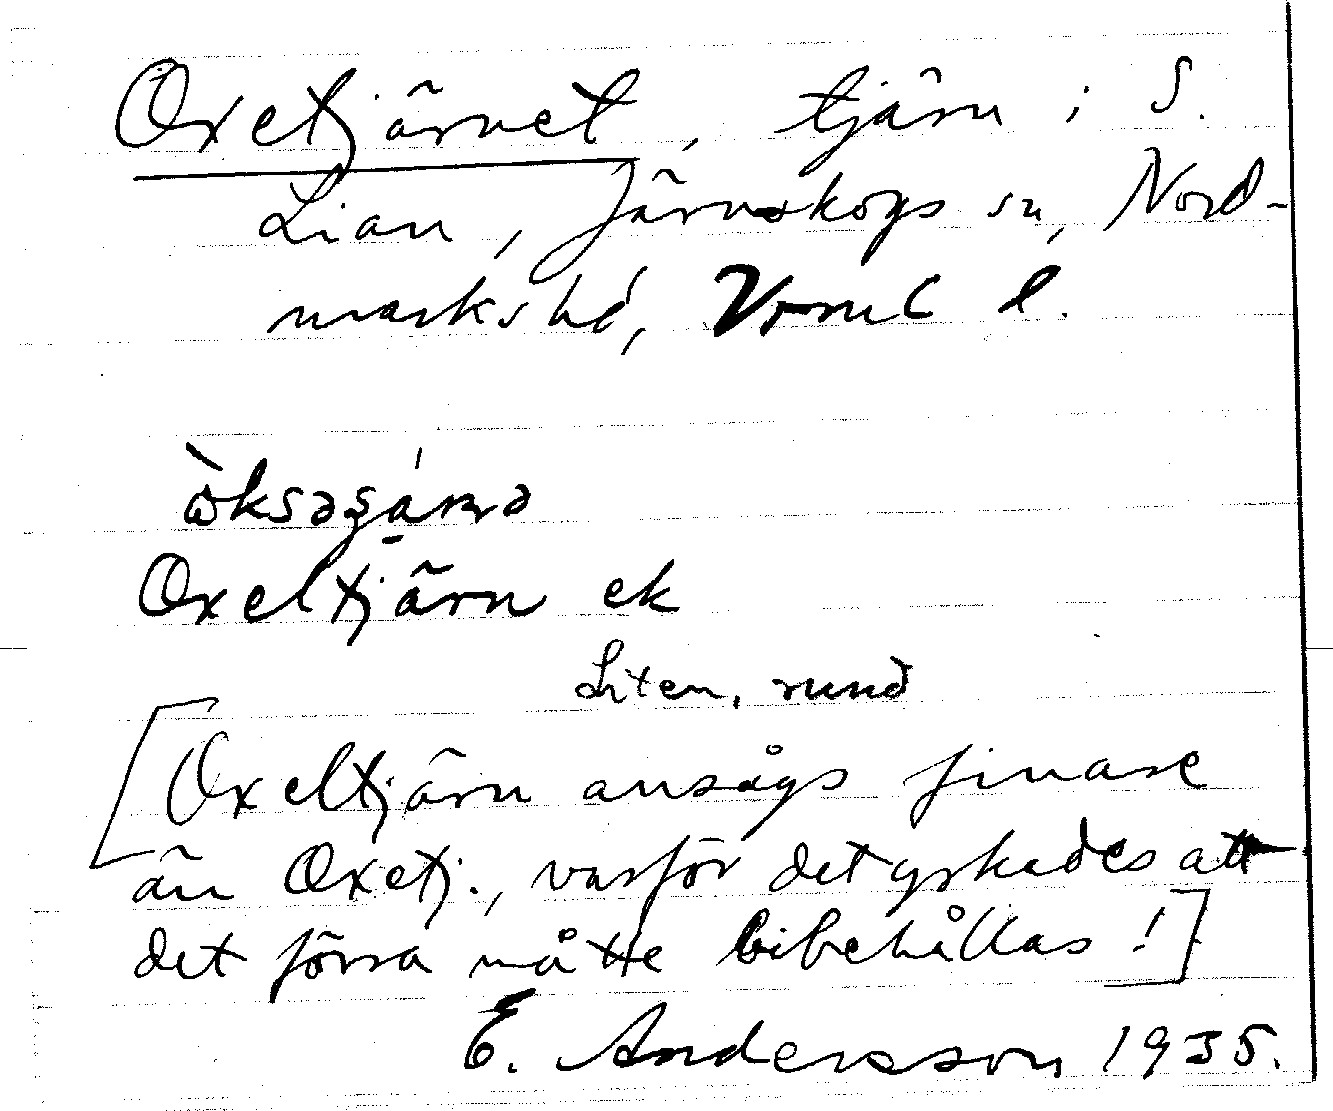 Oxetjärnet, tjärn i S.
Lian, Järnskogs sn, Nord-
marks hd, Vrml l.
Oxeltjärn ek
Liten, rund
[Oxeltjärn ansågs finare
än Oxetj., varför det yrkades att
det förra måtte bibehållas!]
E. Andersson 1935.